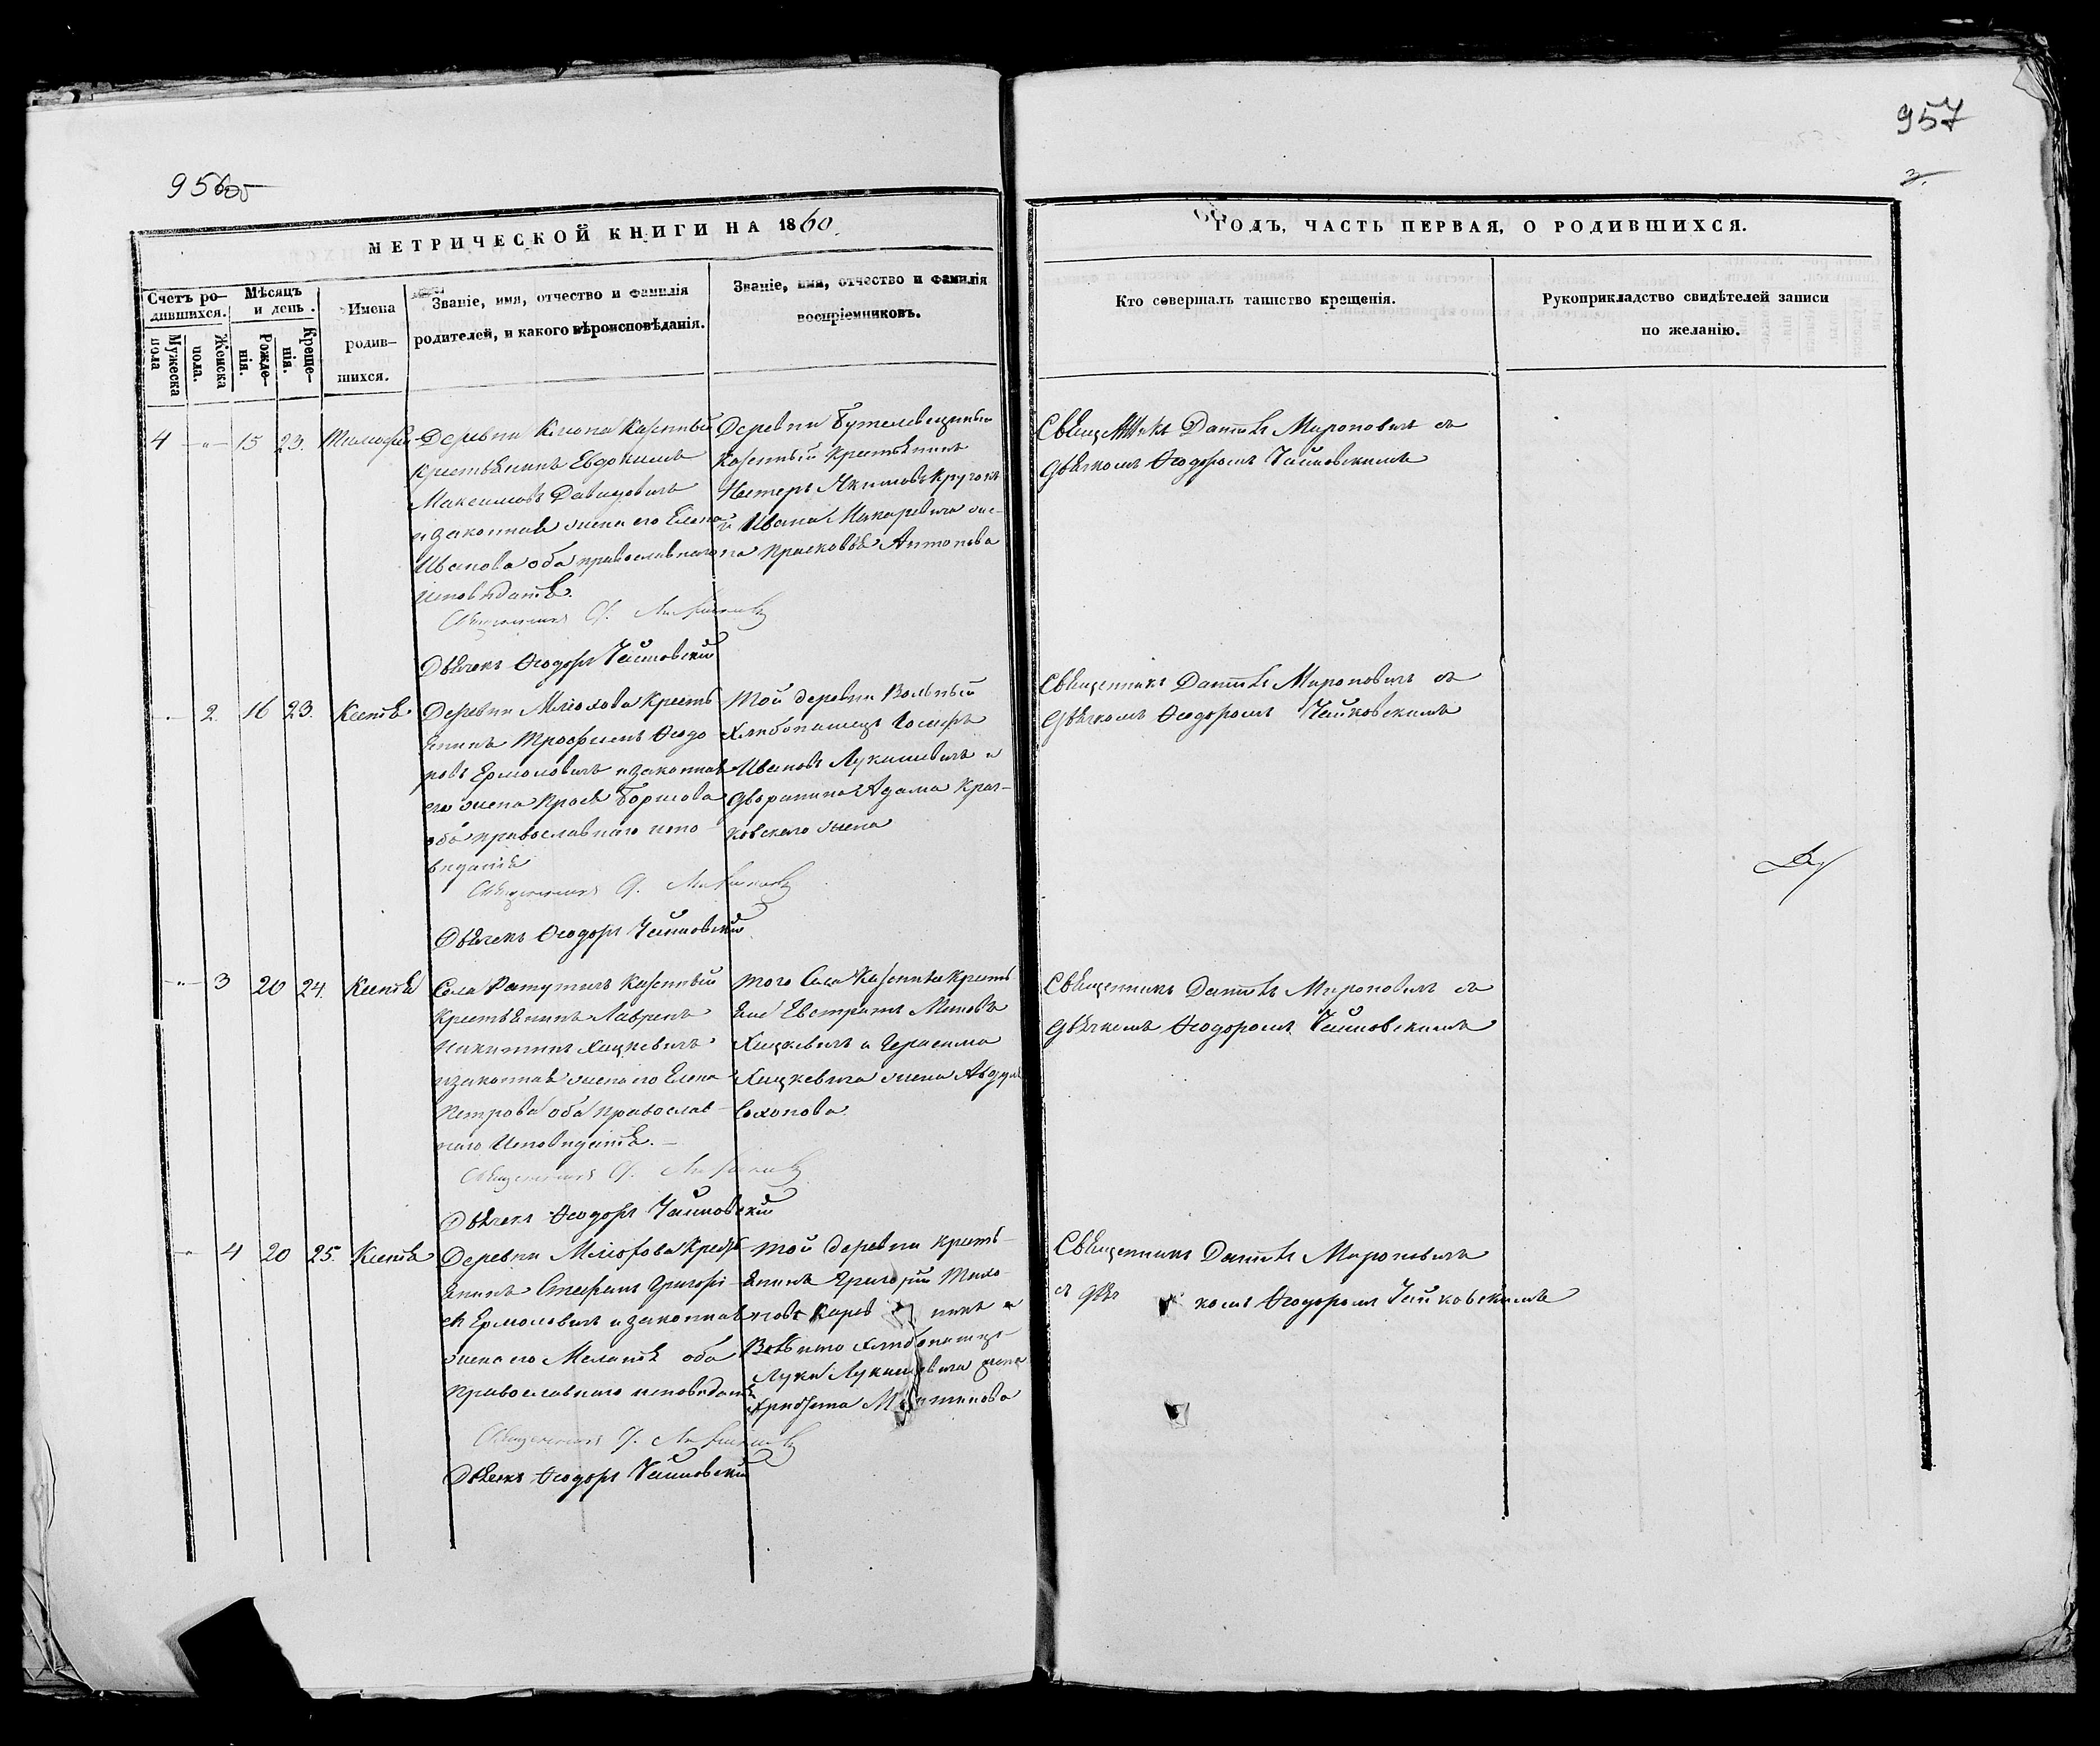 957
МЕТРИЧЕСКОЙ КНИГИ НА 1860
ГОДЪ, ЧАСТЬ ПЕРВАЯ, О РОДИВШИХСЯ.
Счетъ ро-
дившихся.
Мужеска
пола
Женска
пола.
Мѣсяцъ
и день.
Рожде-
нія.
Креще-
нія.
Имена
родив-
шихся.
Званіе, имя, отчество и фамилія
родителей, и какого вѣроисповѣданія.
Званіе, имя, отчество и фамилія
воспріемниковъ.
Кто совершалъ таинство крещенія.
Рукоприкладство свидѣтелей записи
по желанію.
4 " 15 23. Тимофей
Деревни Казенный
крестьянинъ Евдокимъ
Максимовъ Давидовичъ
и законная жена его Елена
Иванова оба православнаго
исповѣданія.
Священникъ
Дьячекъ Ѳеодоръ Чайковскій
Деревни
Казенный крестьянинъ
Нестеръ Якимовъ Кругликъ
и Ивана Макаревича же-
на Прасковья Антонова
Священникъ Даніилъ Мироновичъ съ
дьячкомъ Ѳеодоромъ Чайковскимъ
2. 16 23. Ксенія
Деревни Милохова Кресть
янинъ Трофимъ Ѳеодо
ровъ Ермоловичъ и законная
его жена Борисова
оба православнаго испо
вѣданія
Священникъ
Дьячекъ Ѳеодоръ Чайковскій
Той деревни Вольный
Хлѣбопашецъ Іосифъ
Ивановъ Лукашевичъ и
дворянина Адама
ковскаго жена
Священникъ Даніилъ Мироновичъ съ
дьячкомъ Ѳеодоромъ Чайковскимъ
" 3 20 24. Ксенія
Села Ратутичъ Казенный
Крестьянинъ Лаврен
Никитинъ Хицкевичъ
и законная жена его Елена
Петрова оба православ-
наго Исповѣданія.
Священникъ
Дьячекъ Ѳеодоръ Чайковскій
того Села Казенные Кресть
яне Евстратъ
Хицкевичъ и Герасима
Хицкевича жена
Священникъ Даніилъ Мироновичъ съ
дьячкомъ Ѳеодоромъ Чайковскимъ
" 4 20 25. Ксенія
Деревни Милохова Кресть
янинъ Стефанъ Григорі-
евъ Ермоловичъ и законная
жена его Меланія оба
Православнаго исповѣданія
Священникъ
Дьячекъ Ѳеодоръ Чайковскій
той деревни кресть-
янинъ Григорій
и
Вольнаго хлѣбопашца
Луки Лукашевича жена
Священникъ Даніилъ Мироновичъ
съ дьячкомъ Ѳеодоромъ Чайковскимъ